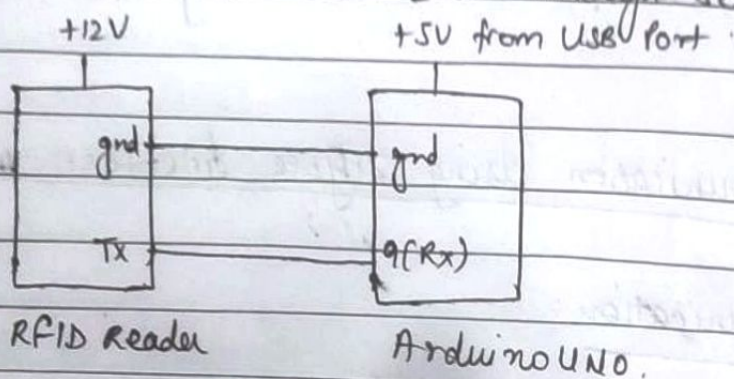 +12V
+5V from USB Port.
gnd
gnd
Tx
9(Rx)
RFID Reader
Arduino UNO.